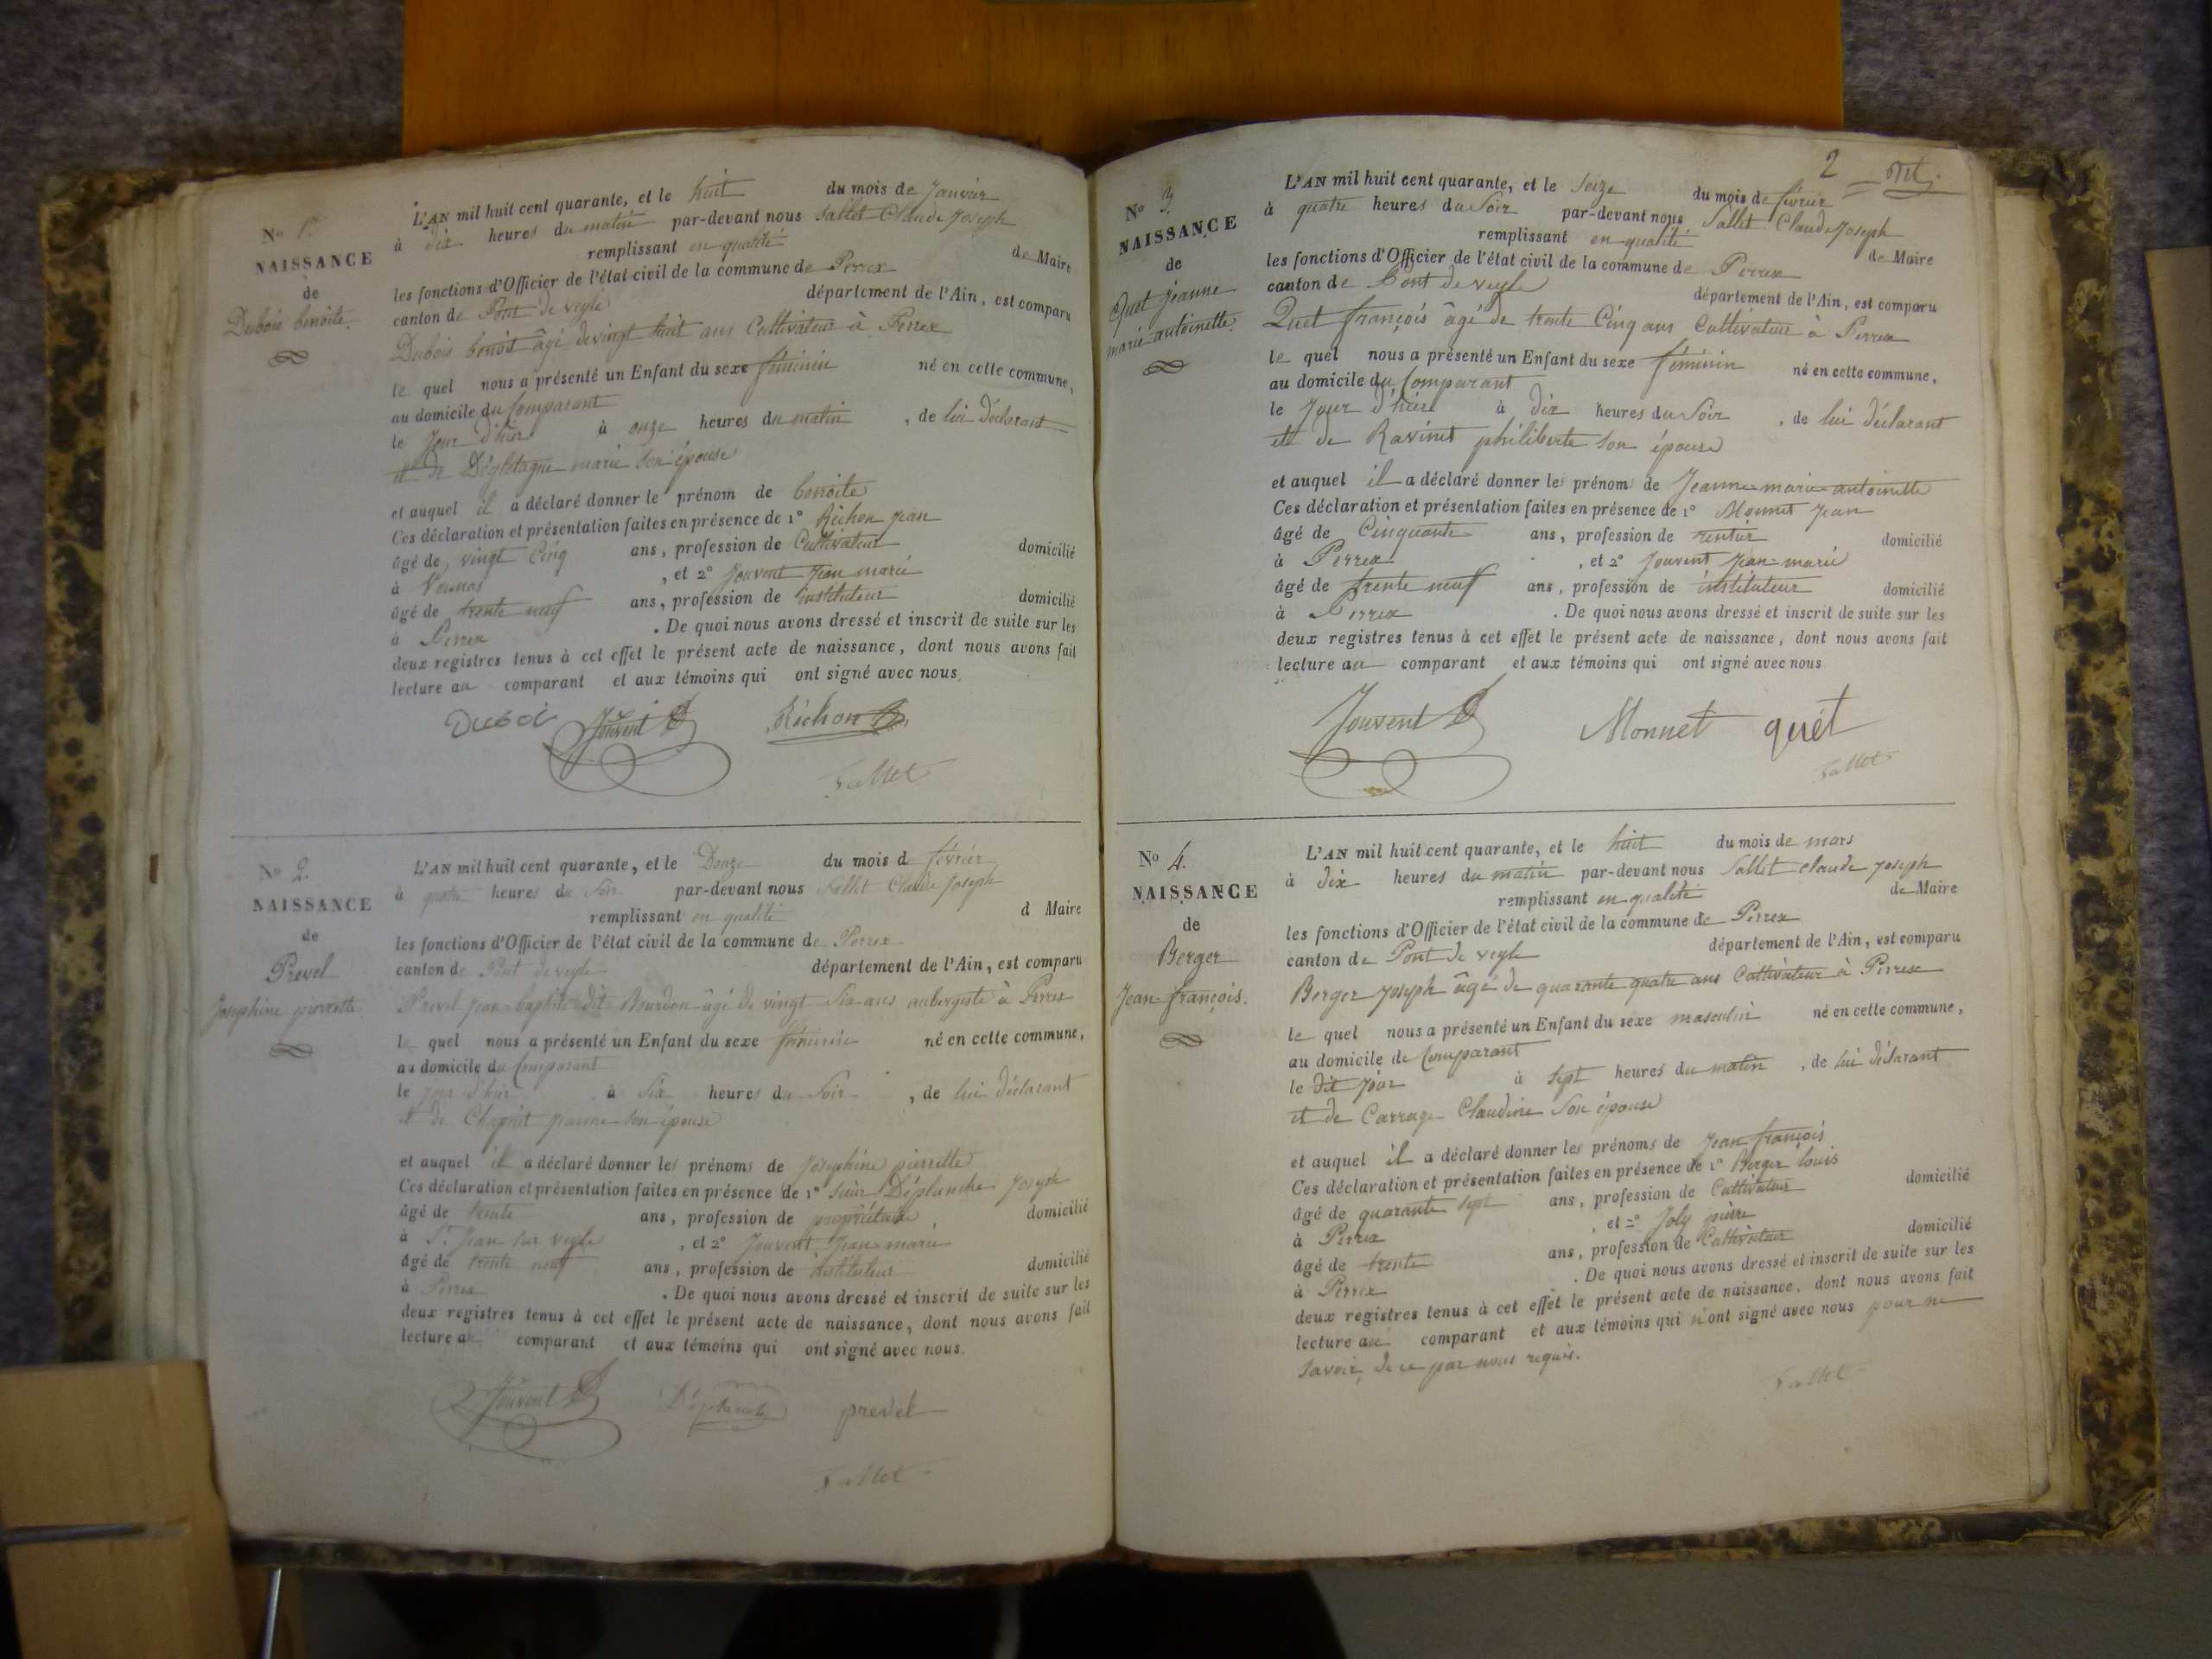 N° 1.
NAISSANCE
de
Dubois benoite.
L'AN mil huit cent quarante, et le huit du mois de Janvier
à dix heures du matin par-devant nous Sallet Claude Joseph
remplissant en qualité de Maire
les fonctions d'Officier de l'état civil de la commune de Perrex
canton de Pont de veyle département de l'Ain, est comparu
Dubois benoit âgé de vingt huit ans Cultivateur à Perrex
le quel nous a présenté un Enfant du sexe féminin né en cette commune,
au domicile du Comparant
le Jour d'hier à onze heures du matin, de lui déclarant
et de marie son épouse
et auquel il a déclaré donner le prénom de benoite
Ces déclaration et présentation faites en présence de 1° Richon Jean
âgé de vingt Cinq ans, profession de Cultivateur domicilié
à Vonnas, et 2° Jouvent Jean marie
âgé de trente neuf ans, profession de instituteur domicilié
à Perrex. De quoi nous avons dressé et inscrit de suite sur les
deux registres tenus à cet effet le présent acte de naissance, dont nous avons fait
lecture au comparant et aux témoins qui ont signé avec nous.
Duboi Jouvent Richon
Sallet
N° 2.
NAISSANCE
de
Prevel
Josephine pierrette.
L'AN mil huit cent quarante, et le Douze du mois d février
à quatre heures du Soir par-devant nous Sallet Claude Joseph
remplissant en qualité d Maire
les fonctions d'Officier de l'état civil de la commune de Perrex
canton de Pont de veyle département de l'Ain, est comparu
Prevel Jean-baptiste dit Bourdon âgé de vingt Six ans aubergiste à Perrex
le quel nous a présenté un Enfant du sexe féminin né en cette commune,
au domicile du Comparant
le jour d'hier à Six heures du Soir, de lui déclarant
et de Jeanne son épouse
et auquel il a déclaré donner les prénoms de Joséphine pierrette
Ces déclaration et présentation faites en présence de 1° Déplanche Joseph
âgé de trente ans, profession de propriétaire domicilié
à St Jean sur veyle, et 2° Jouvent Jean-marie
âgé de trente neuf ans, profession de instituteur domicilié
à Perrex. De quoi nous avons dressé et inscrit de suite sur les
deux registres tenus à cet effet le présent acte de naissance, dont nous avons fait
lecture au comparant et aux témoins qui ont signé avec nous.
Jouvent Déplanche prevel
Sallet
2
N° 3.
NAISSANCE
de
Quet Jeanne
marie antoinette.
L'AN mil huit cent quarante, et le Seize du mois de février
à quatre heures du Soir par-devant nous Sallet Claude Joseph
remplissant en qualité de Maire
les fonctions d'Officier de l'état civil de la commune de Perrex
canton de Pont de veyle département de l'Ain, est comparu
Quet françois âgé de trente Cinq ans Cultivateur à Perrex
le quel nous a présenté un Enfant du sexe féminin né en cette commune,
au domicile du Comparant
le Jour d'hier à dix heures du Soir, de lui déclarant
et de Ravinet philiberte son épouse
et auquel il a déclaré donner les prénoms de Jeanne-marie-antoinette
Ces déclaration et présentation faites en présence de 1° Monnet Jean
âgé de Cinquante ans, profession de rentier domicilié
à Perrex, et 2° Jouvent Jean-marie
âgé de trente neuf ans, profession de instituteur domicilié
à Perrex. De quoi nous avons dressé et inscrit de suite sur les
deux registres tenus à cet effet le présent acte de naissance, dont nous avons fait
lecture au comparant et aux témoins qui ont signé avec nous
Jouvent Monnet quét
Sallet
N° 4.
NAISSANCE
de
Berger
Jean-françois.
L'AN mil huit cent quarante, et le huit du mois de mars
à dix heures du matin par-devant nous Sallet claude Joseph
remplissant en qualité de Maire
les fonctions d'Officier de l'état civil de la commune de Perrex
canton de Pont de veyle département de l'Ain, est comparu
Berger Joseph âgé de quarante quatre ans Cultivateur à Perrex
le quel nous a présenté un Enfant du sexe masculin né en cette commune,
au domicile du Comparant
le dit jour à sept heures du matin, de lui déclarant
et de Carrage Claudine Son épouse
et auquel il a déclaré donner les prénoms de Jean françois
Ces déclaration et présentation faites en présence de 1° Berger louis
âgé de quarante sept ans, profession de Cultivateur domicilié
à Perrex, et 2° Joly pierre
âgé de trente ans, profession de Cultivateur domicilié
à Perrex. De quoi nous avons dressé et inscrit de suite sur les
deux registres tenus à cet effet le présent acte de naissance, dont nous avons fait
lecture au comparant et aux témoins qui n'ont signé avec nous pour ne
Savoir, de ce par nous requis.
Sallet